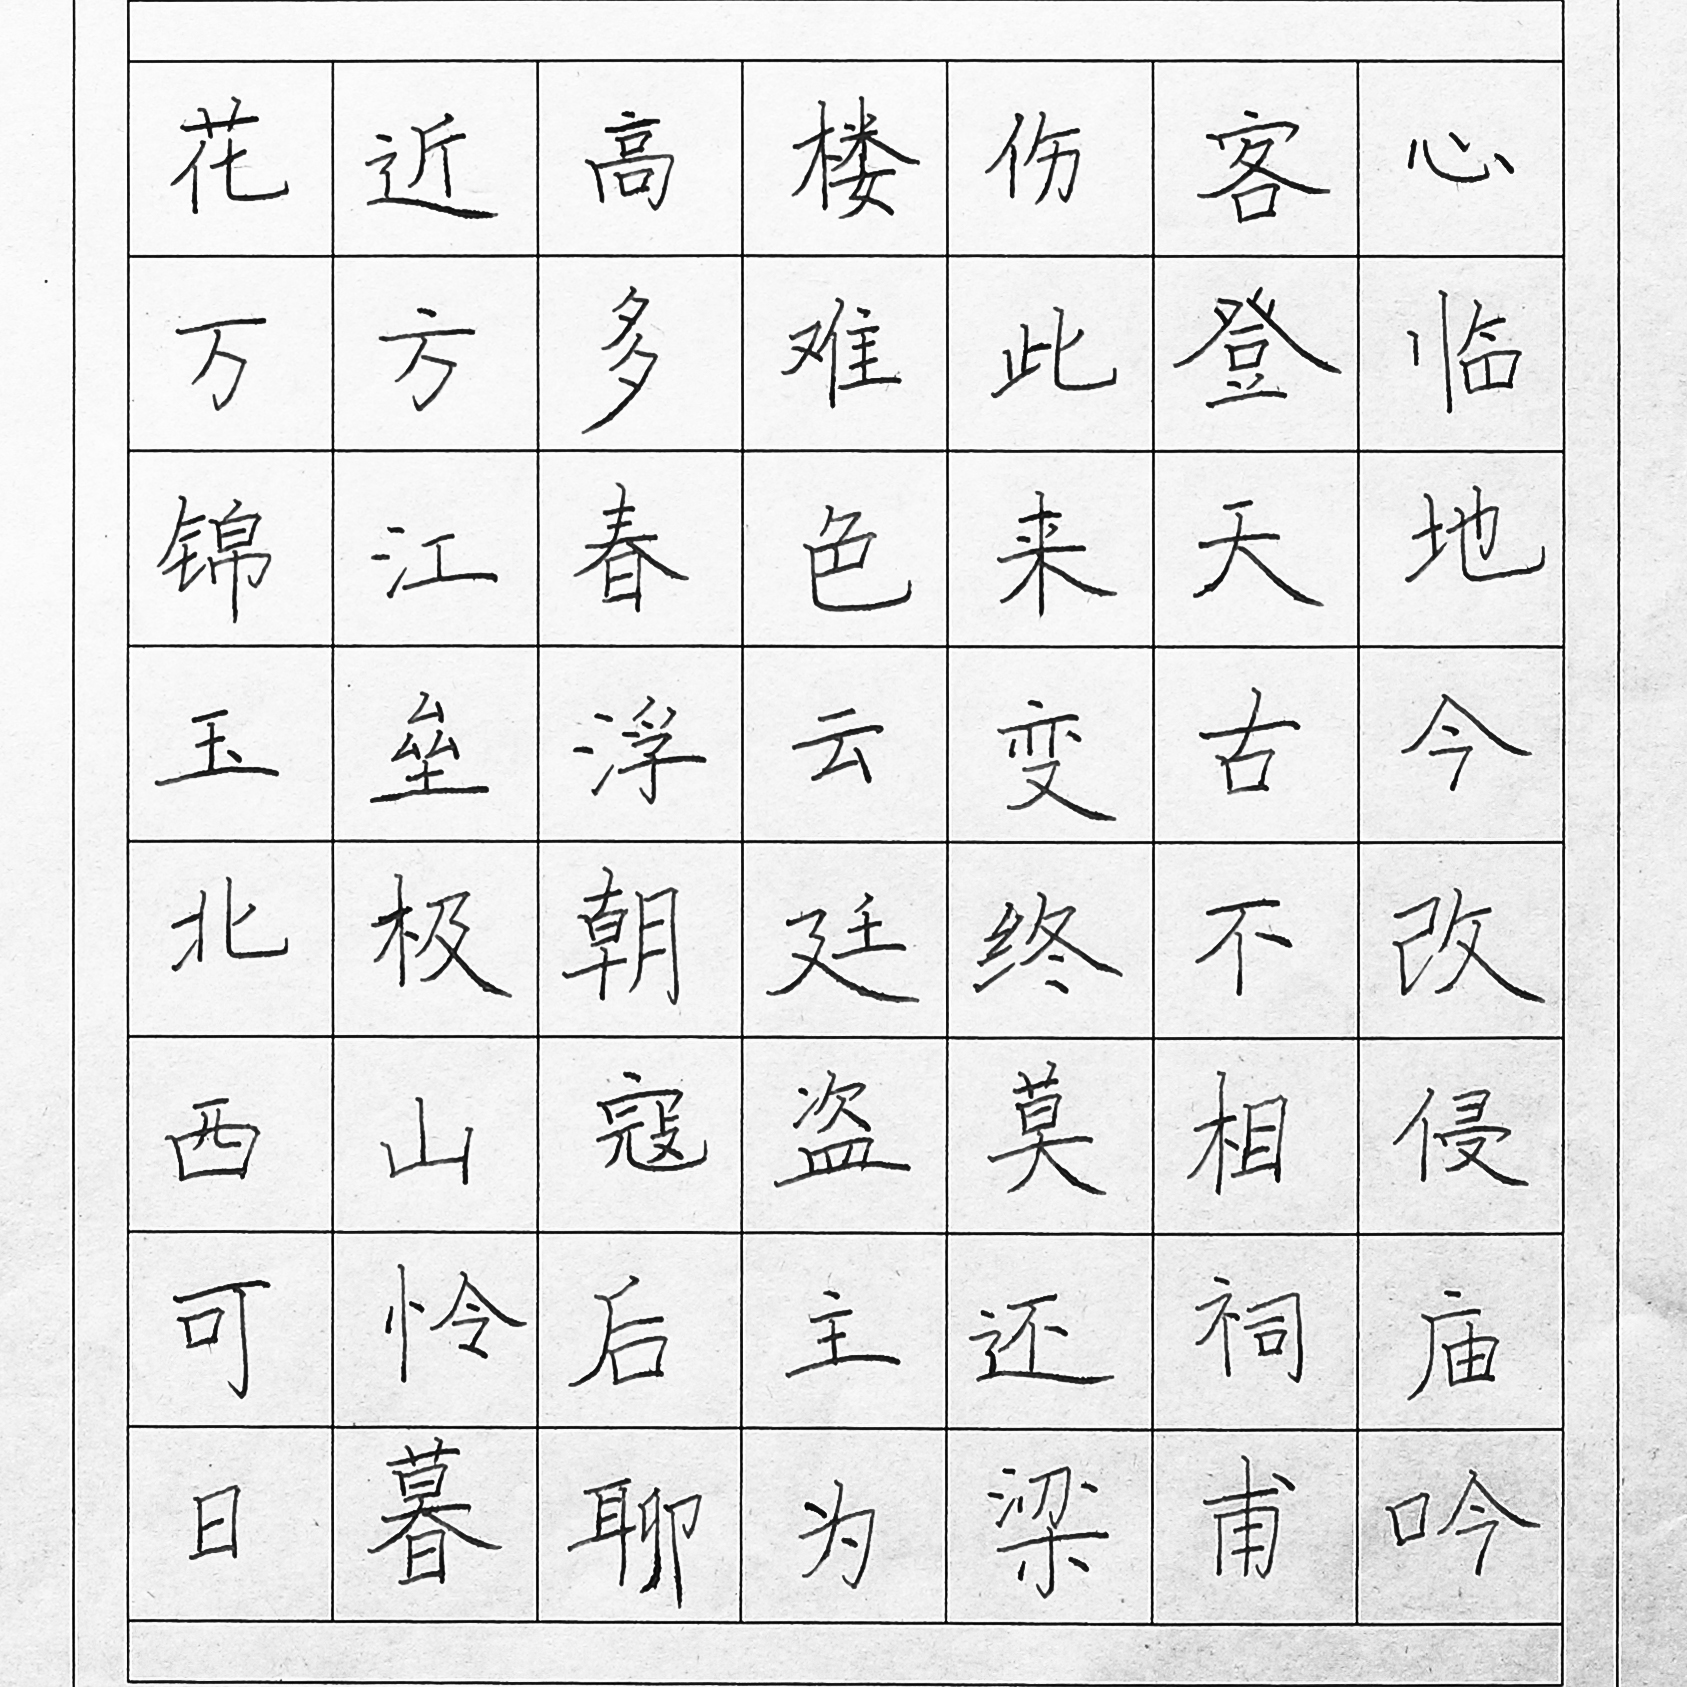 花近高楼伤客心
万方多难此登临
锦江春色来天地
玉垒浮云变古今
北极朝廷终不改
西山寇盗莫相侵
可怜后主还祠庙
日暮聊为梁甫吟